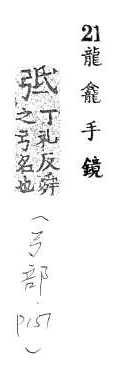 21龍龕手鏡
弤丁礼反舜
之弓名也
(弓部·p157)